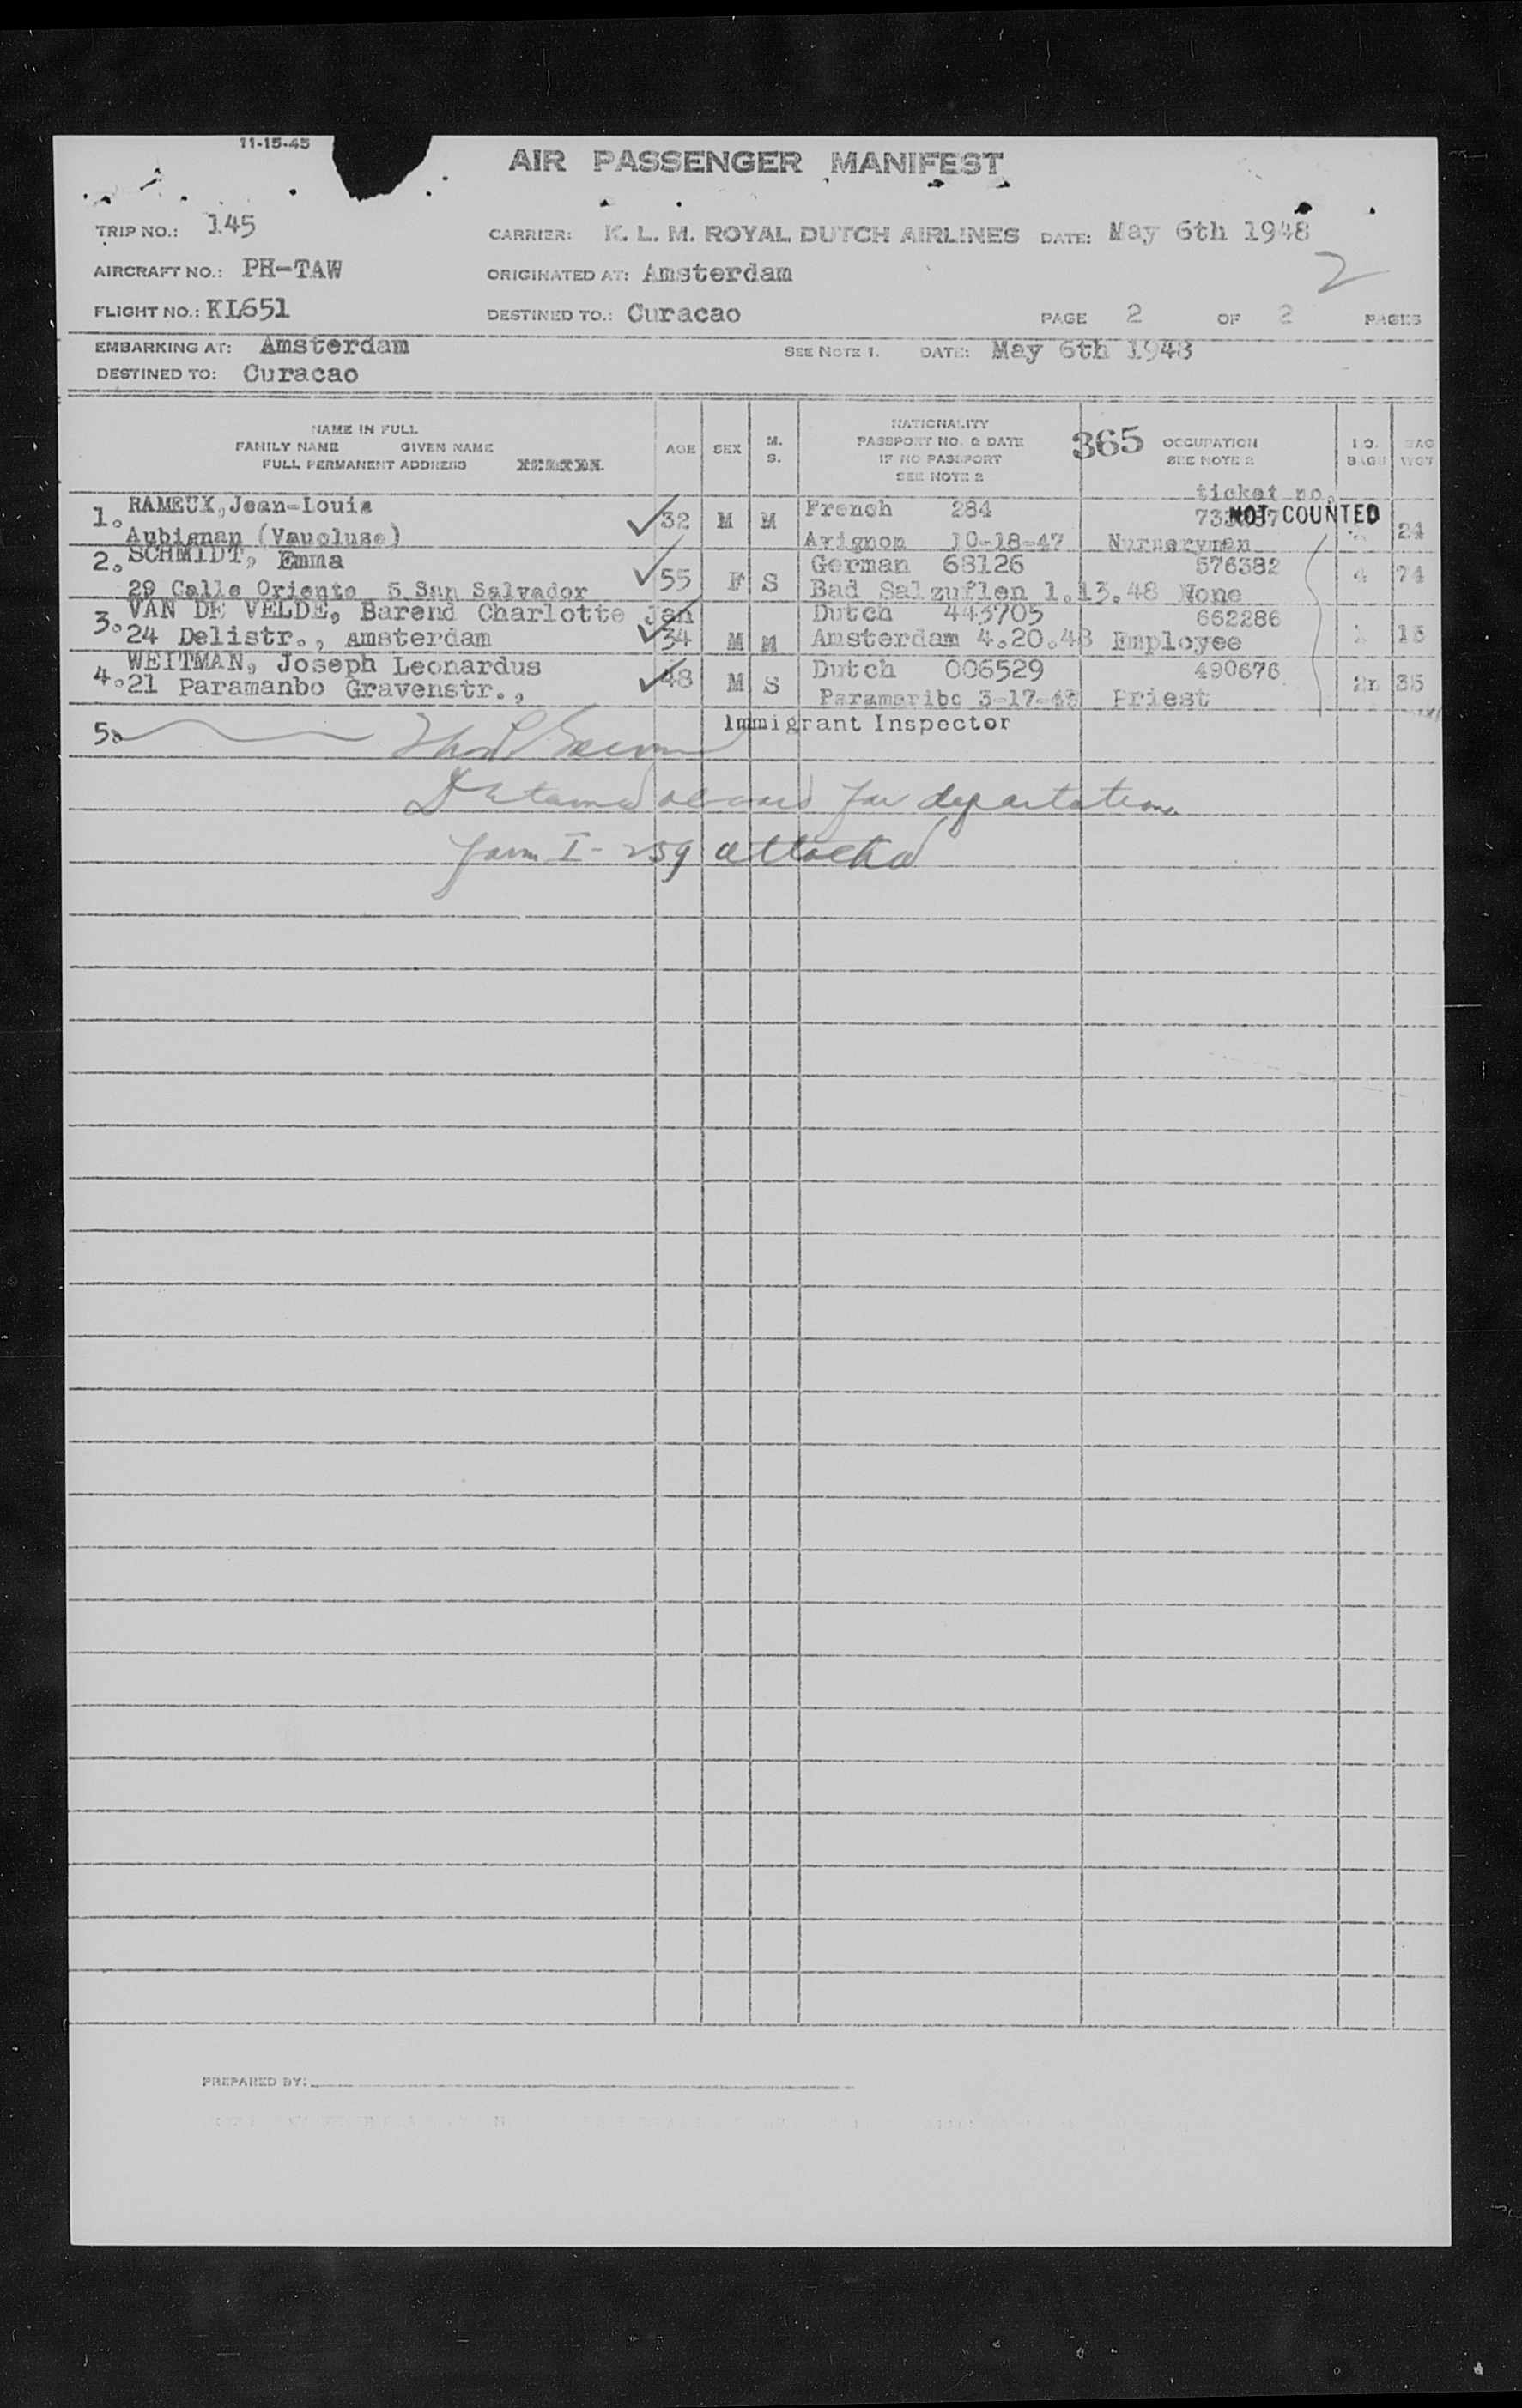 11-15-45
AIR PASSENGER MANIFEST
TRIP NO.: 145 CARRIER: K. L. M. ROYAL DUTCH AIRLINES DATE: May 6th 1948
AIRCRAFT NO.: PH-TAW ORIGINATED AT: Amsterdam 2
FLIGHT NO.: KL651 DESTINED TO.: Curacao PAGE 2 OF 2 PAGES
EMBARKING AT: Amsterdam SEE NOTE 1. DATE: May 6th 1948
DESTINED TO: Curacao
NAME IN FULL
FAMILY NAME GIVEN NAME
FULL PERMANENT ADDRESS
AGE SEX M. S.
NATIONALITY
PASSPORT NO. & DATE
IF NO PASSPORT
SEE NOTE 2
365 OCCUPATION
SEE NOTE 2
NO. BAGS BAG WGT
ticket no.
1. RAMEUX, Jean-Louis 32 M M French 284 NOT COUNTED 24
Aubignan (Vaucluse) Avignon 10-18-47 Nurseryman
2. SCHMIDT, Emma 55 F S German 68126 576382 4 74
29 Calle Oriente 5 San Salvador Bad Salzuflen 1.13.48 None
3. VAN DE VELDE, Barend Charlotte Jan Dutch 443705 662286
24 Delistr., Amsterdam 34 M M Amsterdam 4.20.48 Employee 1 15
4. WEITMAN, Joseph Leonardus 48 M S Dutch 006529 490676
21 Paramanbo Gravenstr., Paramaribo 3-17-48 Priest 35
5. Immigrant Inspector
Detained aboard for deportation
form I-259 attached
PREPARED BY: